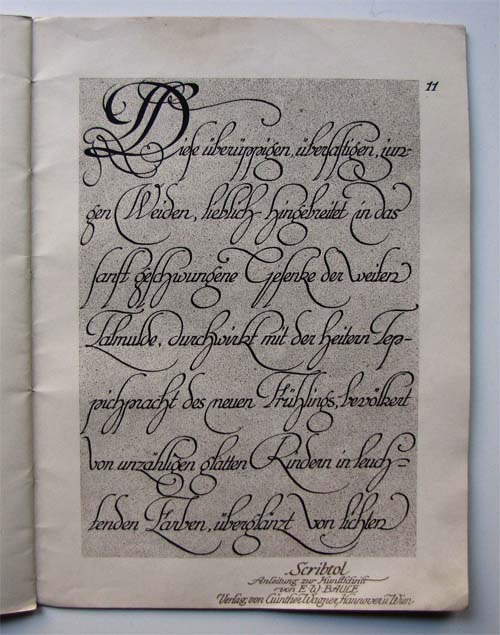 11
Diese überüppigen, übersaftigen, jun-
gen Weiden, lieblich hingebreitet in das
sanft geschwungene Gesenke der weiten
Talmulde, durchwirkt mit der heitern Tep-
pichpracht des neuen Frühlings, bevölkert
von unzähligen glatten Rindern in leuch-
tenden Farben, überglänzt von lichten
Scribtol
Anleitung zur Kunstschrift
von E. W. BAULE
Verlag von Günther Wagner, Hannover u Wien